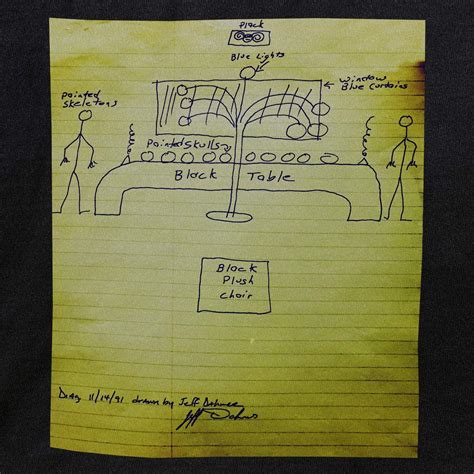 Plack
Blue Lights
Window
Blue Curtains
Painted
Skeletons
Painted Skulls
Black Table
Black
Plush
Chair
11/14/91 drawn by Jeff Dahmer